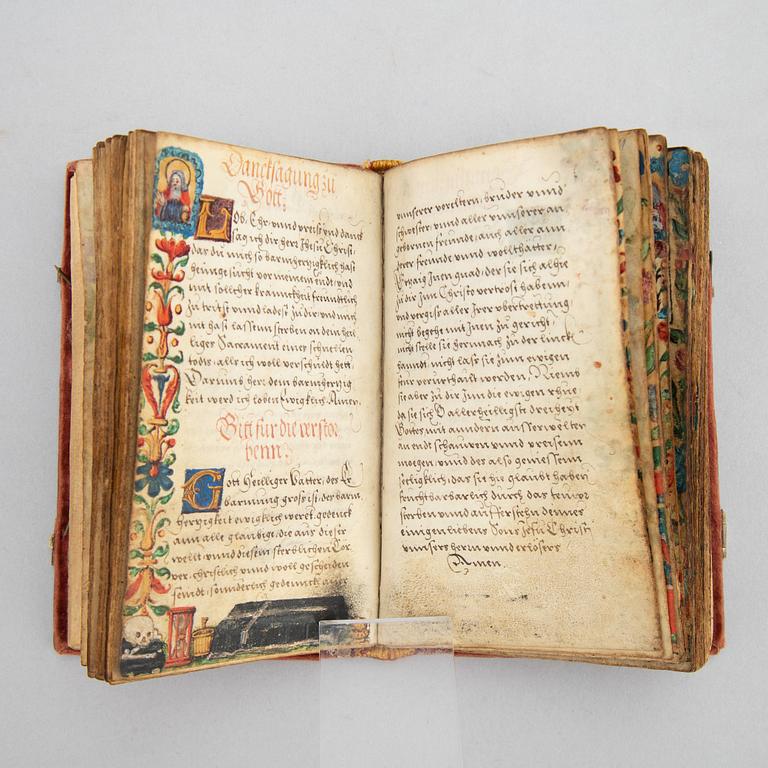 Dancksagung zu
Gott.
Lob, Ehr, unnd preiß unnd danck
sag ich dir herr Jhesu Christ,
das du mich so barmhertzigklich hast
heimgesucht vor meinem end, und
mit sollcher kranckheit freundtlich
zu dir unnd mich
nit hast lassenn sterben an dem heil
ligen Sacrament eines schnellen
todts, alls ich woll verschuldt hett
Darumb herr dein barmhertzig
keit werd ich loben Ewigklich, Amen.
Bitt für die verstor
benn.
Gott Heiliger Vatter, des
barmung groß ist, der barm
hertzigkeit ewigklich weret, gedenck
ann alle glaubige, die aus dieser
wellt unnd diesem sterblichen Cor
per, christlich unnd woll gescheiden
seindt, sonderlich gedenck auch
unnserer voreltern, brüder unnd
schwester, unnd aller unnserer an
gebornen freunde, auch aller ann
derer freunde unnd wollthatter,
Ertzaig Inen gnad, der sie sich alhie
zu dir Inn Christo vertrost habenn,
und vergiß aller Irer ubertrettung,
nicht begehe mit Inen zu gericht,
nicht stelle sie hernach zu der linck
hanndt, nicht laß sie zum ewigen
feur verurthailt werden, Nimb
sie aber zu dir Inn die ewigen rhue
da sie sich O allerheiligste dreiheyt
Gottes mit anndern ausserwelten
an endt schauwen unnd preisenn
moegen, unnd des also geniessenn
seligklich, das sie hie glaubt haben
durch das
sterben unnd aufferstehn deines
einigen liebens Sons Jesu Christi
unnsers herrn unnd erlösers
Amen.